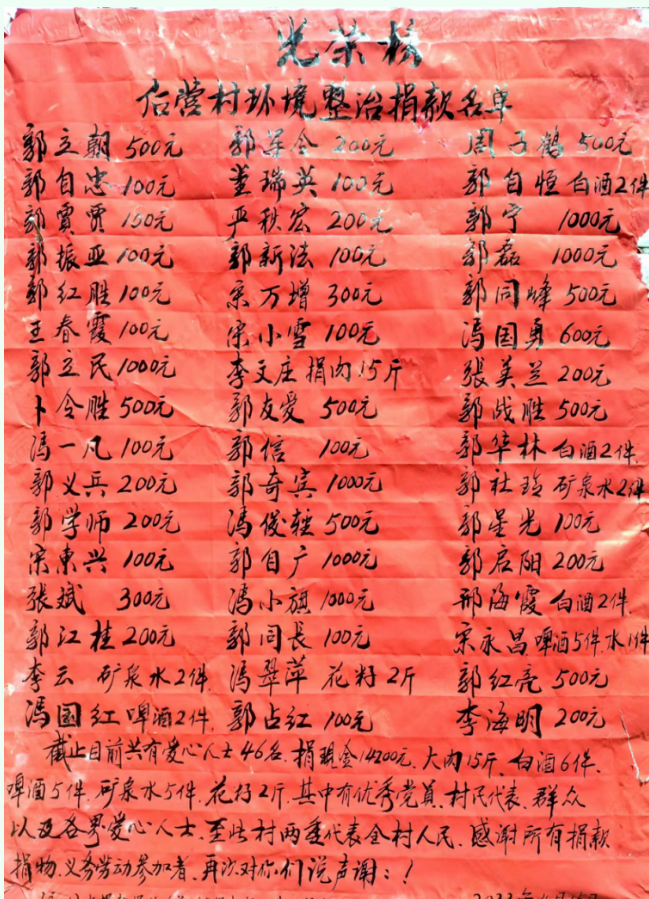 光荣榜
后营村环境整治捐款名单
郭立朝 500元 郭军令 200元 周子鹤 500元
郭自忠 100元 董瑞英 100元 郭自恒 白酒2件
郭贾贾 150元 严秋宏 200元 郭宁 1000元
郭振亚 100元 郭新法 100元 郭磊 1000元
郭红胜 100元 宋万增 300元 郭同峰 500元
王春霞 100元 宋小雪 100元 冯国勇 600元
郭立民 1000元 李文庄 捐肉15斤 張美兰 200元
卜令胜 500元 郭友爱 500元 郭战胜 500元
冯一凡 100元 郭信 100元 郭华林 白酒2件.
郭义兵 200元 郭奇宾 1000元 郭社 矿泉水2件
郭学师 200元 冯俊 500元 郭星光 100元
宋東兴 100元 郭自广 1000元 郭启阳 200元
張斌 300元 冯小旗 1000元 邢海霞 白酒2件.
郭江桂 200元 郭同長 100元 宋永昌 啤酒5件水1件
李云 矿泉水2件. 冯翠萍 花籽2斤 郭红亮 500元
冯国红 啤酒2件. 郭占红 100元 李海明 200元
截止目前共有爱心人士46名.捐现金14200元.大肉15斤.白酒6件.
啤酒5件.矿泉水5件.花籽2斤.其中有优秀党员.村民代表.群众
以及各界爱心人士.至此村两委代表全村人民.感谢所有捐款
捐物.义务劳动参加者.再次对你们说声谢:!